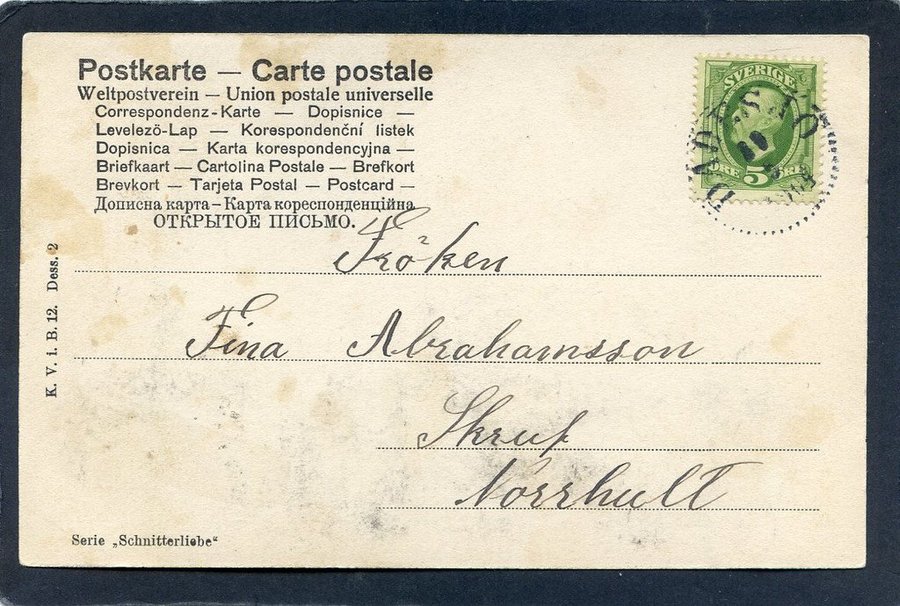 Postkarte — Carte postale
Weltpostverein — Union postale universelle
Correspondenz-Karte — Dopisnice —
Levelező-Lap — Korespondenční listek
Dopisnica — Karta korespondencyjna —
Briefkaart — Cartolina Postale — Brefkort
Brevkort — Tarjeta Postal — Postcard —
Дописна карта — Карта кореспонденційна
ОТКРЫТОЕ ПИСЬМО.
SVERIGE
ÖRE 5 ÖRE
Fröken
Fina Abrahamsson
Skruf
Norrhult
K. V. i. B. 12. Dess. 2
Serie „Schnitterliebe“